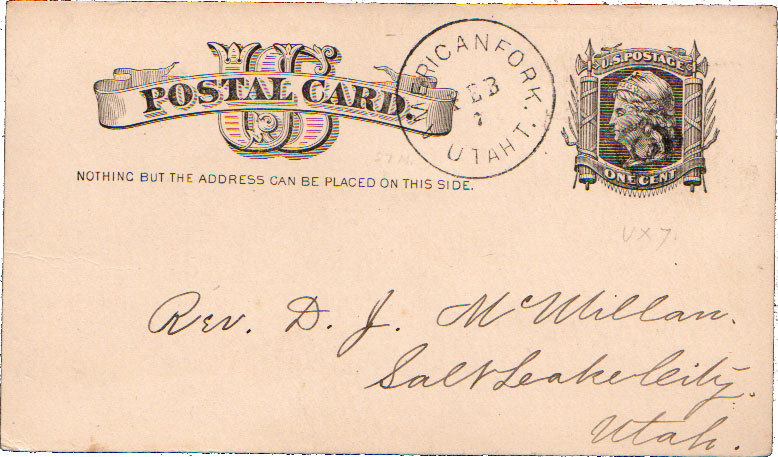 US
POSTAL CARD.
NOTHING BUT THE ADDRESS CAN BE PLACED ON THIS SIDE.
RICANFORK.
FEB
7
UTAH T.
U.S. POSTAGE
ONE CENT
UX7.
Rev. D. J. McMillan.
Salt Leake City.
Utah.